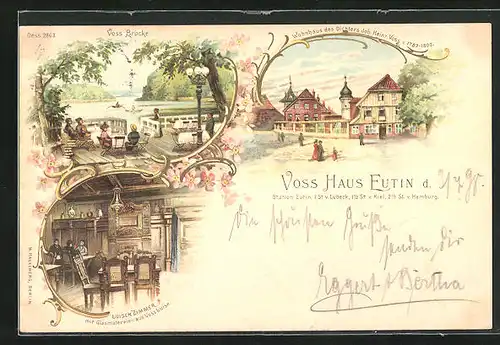 Ges. 2863
Voss Brücke
Wohnhaus des Dichters Joh. Heinr. Voss v. 1782-1802.
VOSS HAUS EUTIN d. 3/7 98
Station Eutin, 1 St v. Lübeck, 1½ St v. Kiel, 2½ St v. Hamburg.
Die schönsten Grüße
senden dir
Eggert & Bertha
"LUISEN ZIMMER"
mit Glasmalereien aus Voss Luise